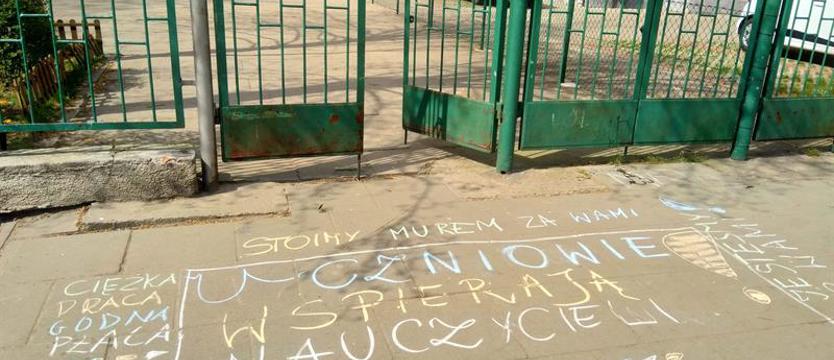 STOIMY MUREM ZA WAMI
UCZNIOWIE
WSPIERAJĄ
NAUCZYCIELI
CIĘŻKA
PRACA
GODNA
PŁACA
JESTEŚMY
Z WAMI